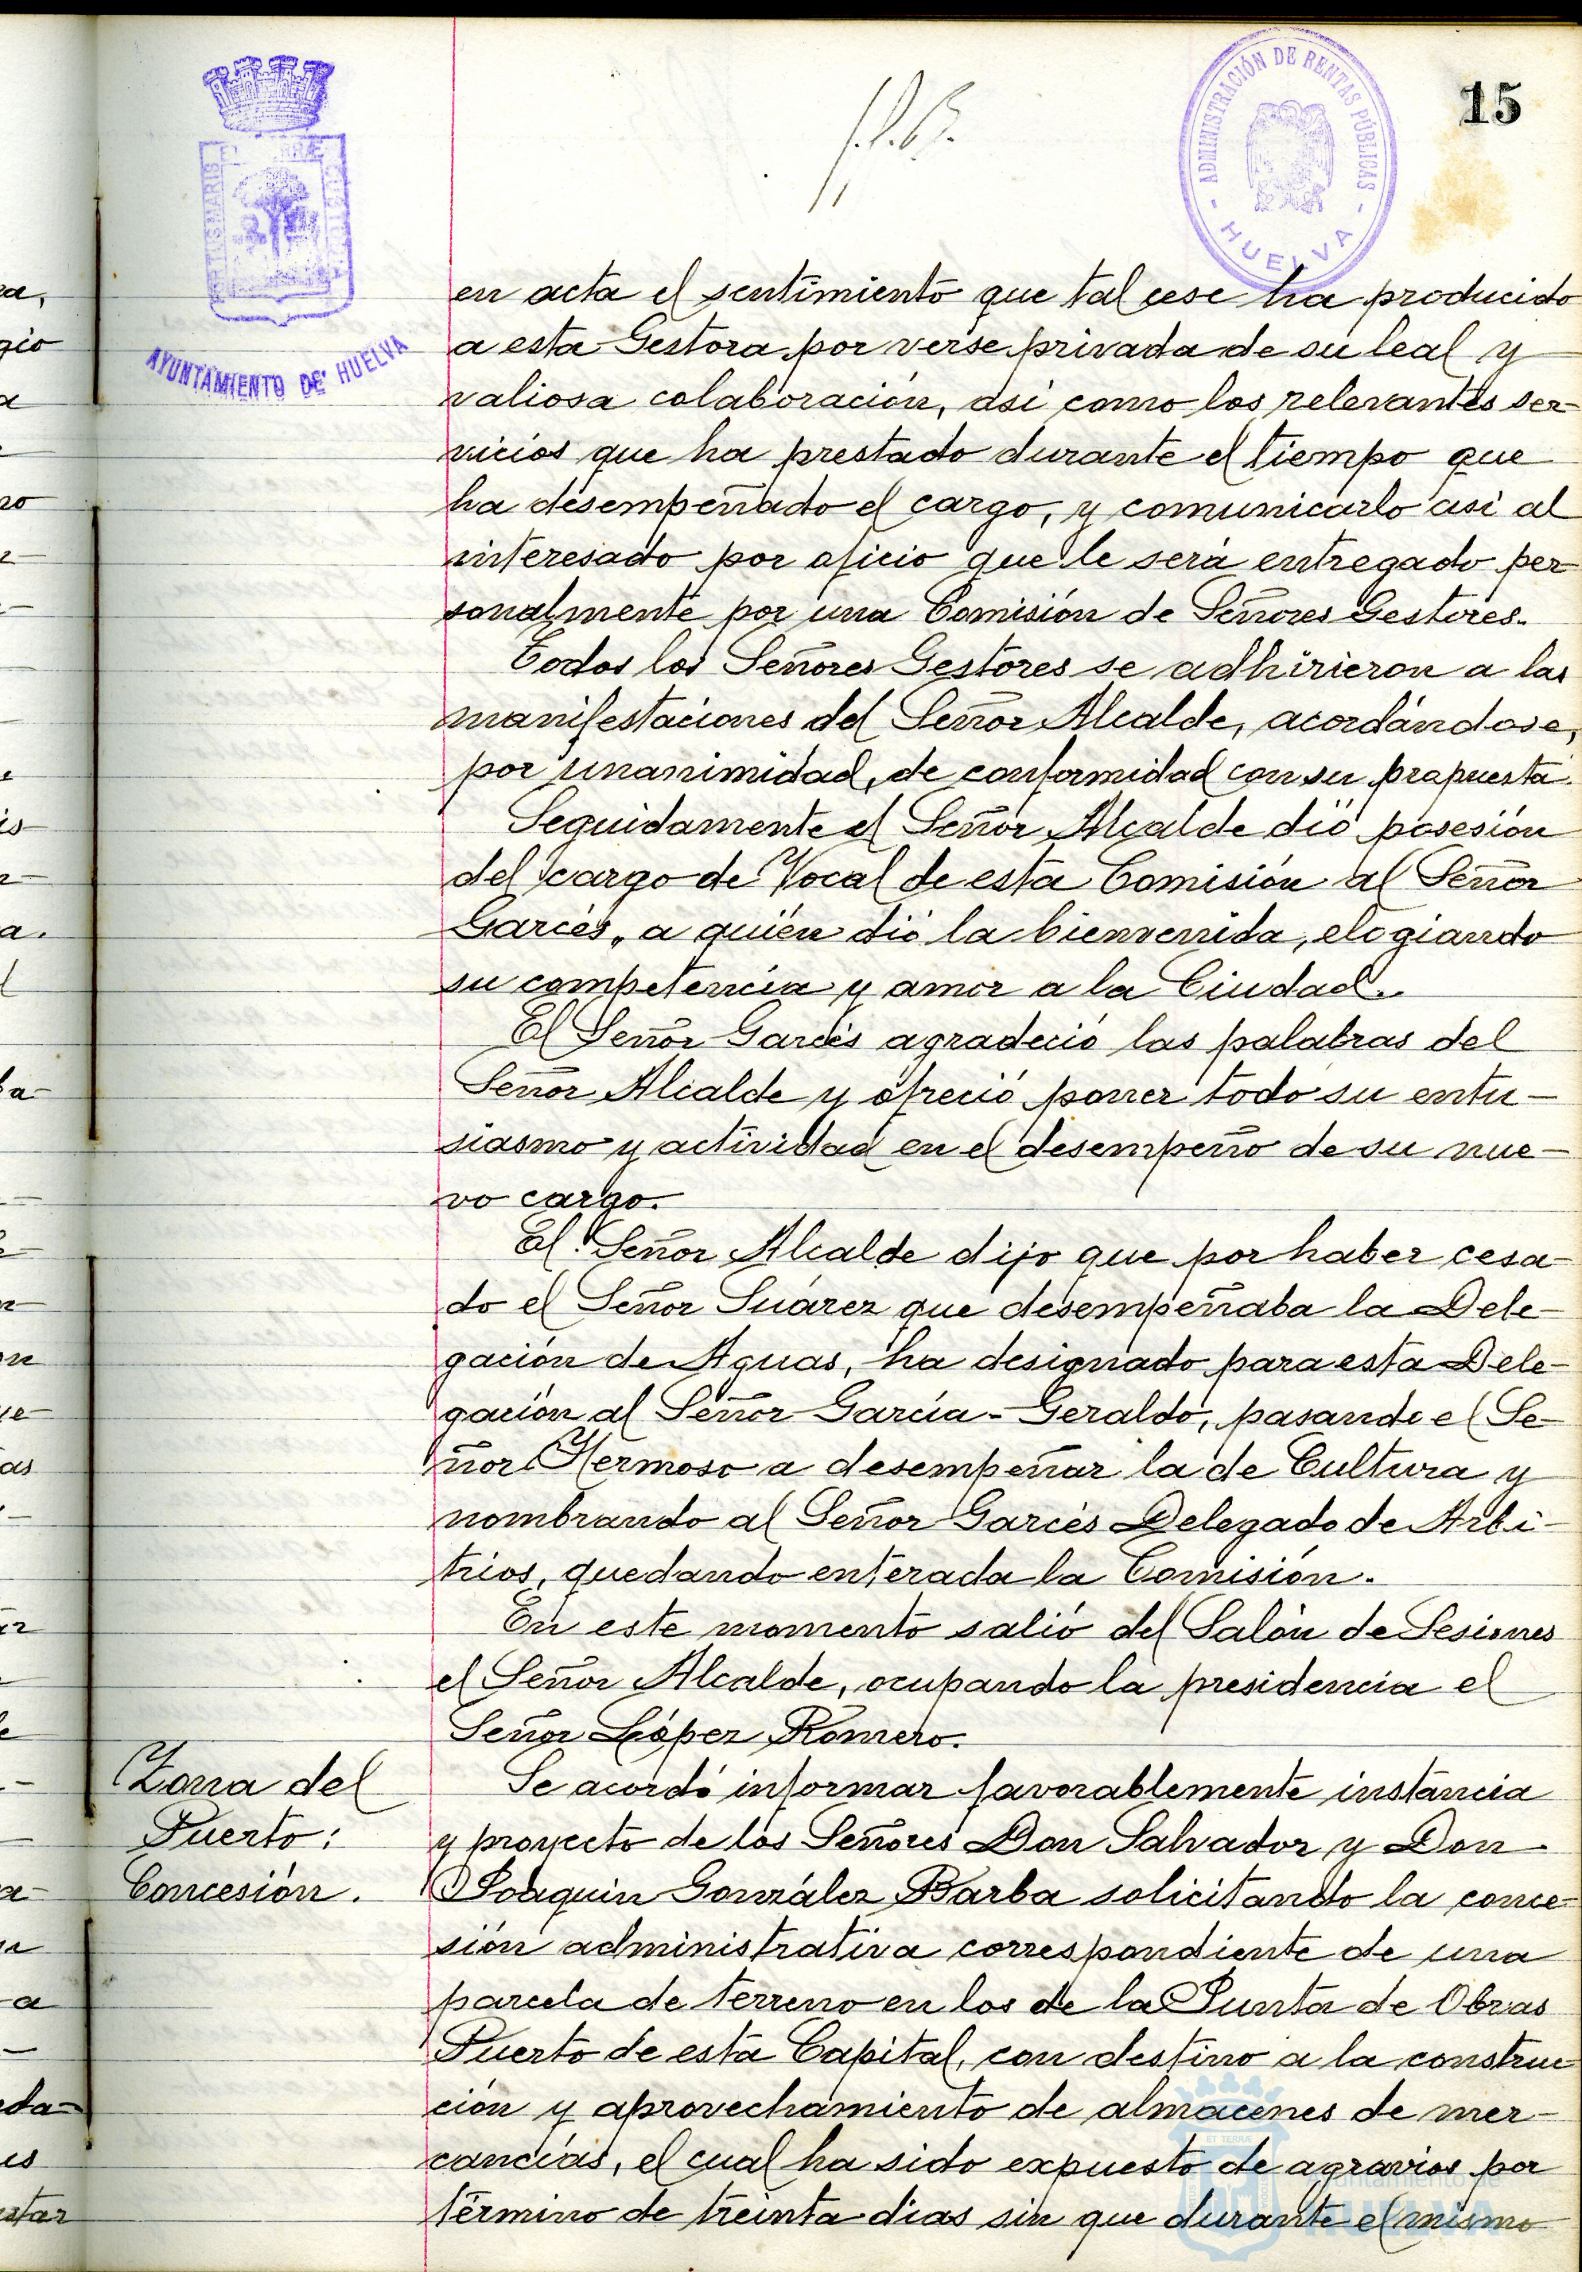 15
ADMINISTRACIÓN DE RENTAS PÚBLICAS
- HUELVA -
AYUNTAMIENTO DE HUELVA
en acta el sentimiento que tal cese ha producido
a esta Gestora por verse privada de su leal y
valiosa colaboración, asi como los relevantes ser-
vicios que ha prestado durante el tiempo que
ha desempeñado el cargo, y comunicarlo asi al
interesado por oficio que le será entregado per-
sonalmente por una Comisión de Señores Gestores.
Todos los Señores Gestores se adhirieron a las
manifestaciones del Señor Alcalde, acordándose,
por unanimidad, de conformidad con su propuesta.
Seguidamente el Señor Alcalde dió posesión
del cargo de Vocal de esta Comisión al Señor
Garcés, a quién dió la bienvenida, elogiando
su competencia y amor a la Ciudad.
El Señor Garcés agradeció las palabras del
Señor Alcalde y ofreció poner todo su entu-
siasmo y actividad en el desempeño de su nue-
vo cargo.
El Señor Alcalde dijo que por haber cesa-
do el Señor Suárez que desempeñaba la Dele-
gación de Aguas, ha designado para esta Dele-
gación al Señor García-Geraldo, pasando el Se-
ñor Hermoso a desempeñar la de Cultura y
nombrando al Señor Garcés Delegado de Arbi-
trios, quedando enterada la Comisión.
En este momento salió del Salón de Sesiones
el Señor Alcalde, ocupando la presidencia el
Señor López Romero.
Zona del
Puerto:
Concesión.
Se acordó informar favorablemente instancia
y proyecto de los Señores Don Salvador y Don
Joaquin González Barba solicitando la conce-
sión administrativa correspondiente de una
parcela de terreno en los de la Junta de Obras
Puerto de esta Capital, con destino a la construc-
ción y aprovechamiento de almacenes de mer-
cancías, el cual ha sido expuesto de agravios por
término de treinta dias sin que durante el mismo
Ayuntamiento de
HUELVA